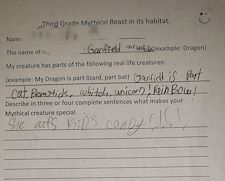 Third Grade Mythical Beast in its habitat.
Name
The name of Garfield (example: Dragon)
My creature has parts of the following real life creatures:
(example: My Dragon is part lizard, part bat) Garfield is Part
cat, unicorn, RainBow!
Describe in three or four complete sentences what makes your
Mythical creature special.
She eats kids candy!!!